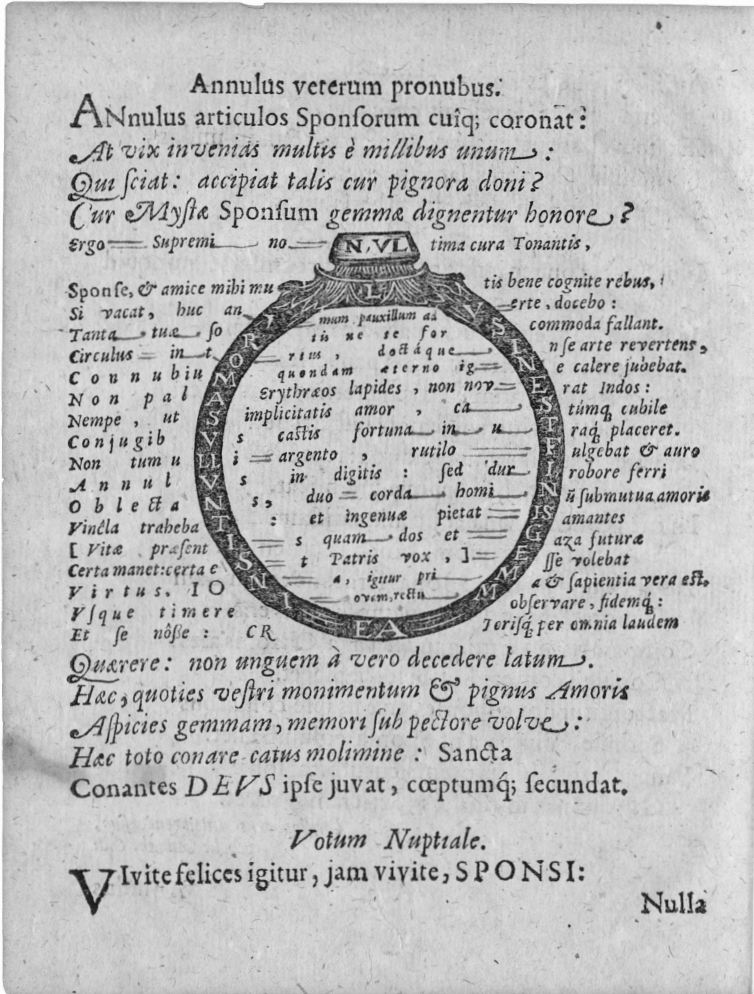 Annulus veterum pronubus.
ANnulus articulos Sponſorum cuîq; coronat:
At vix invenias multis è millibus unum:
Qui ſciat: accipiat talis cur pignora doni?
Cur Myſtæ Sponſum gemmæ dignentur honore?
Ergo Supremi no N, VL tima cura Tonantis,
Sponſe, & amice mihi mu L tis bene cognite rebus,
Si vacat, huc an I mum pauxillum ad V erte, docebo:
Tanta tuæ ſo R tis ne te for S commoda fallant.
Circulus in t O rtus, doctáque I nſe arte revertens,
Connubiu M quondam æterno ig N e calere jubebat.
Non pal M A Erythræos lapides, non nov E rat Indos:
Nempe, ut S implicitatis amor, ca S túmq; cubile
Conjugib V s caſtis fortuna in u T raq́; placeret.
Non tumu L i argento, rutilo F ulgebat & auro
Annul V s in digitis: ſed dur I robore ferri
Oblecta N s, duo corda homi N ū ſub mutua amoris
Vincla traheba T : et ingenuæ pietat IS amantes
[Vitæ præſent I s quam dos et G aza futuræ
Certa manet: certa e S t Patris vox,] E ſſe volebat
Virtus. IO N a, igitur pri M a & ſapientia vera eſt,
Vſque timere I ovem, rectu M obſervare, fidemq́;:
Et ſe nôſſe: CR EA Toriſq́; per omnia laudem
Quærere: non unguem à vero decedere latum.
Hæc, quoties veſtri monimentum & pignus Amoris
Aſpicies gemmam, memori ſub pectore volve:
Hæc toto conare catus molimine: Sancta
Conantes DEVS ipſe juvat, cœptumq́; ſecundat.
Votum Nuptiale.
VIvite felices igitur, jam vivite, SPONSI:
Nulla